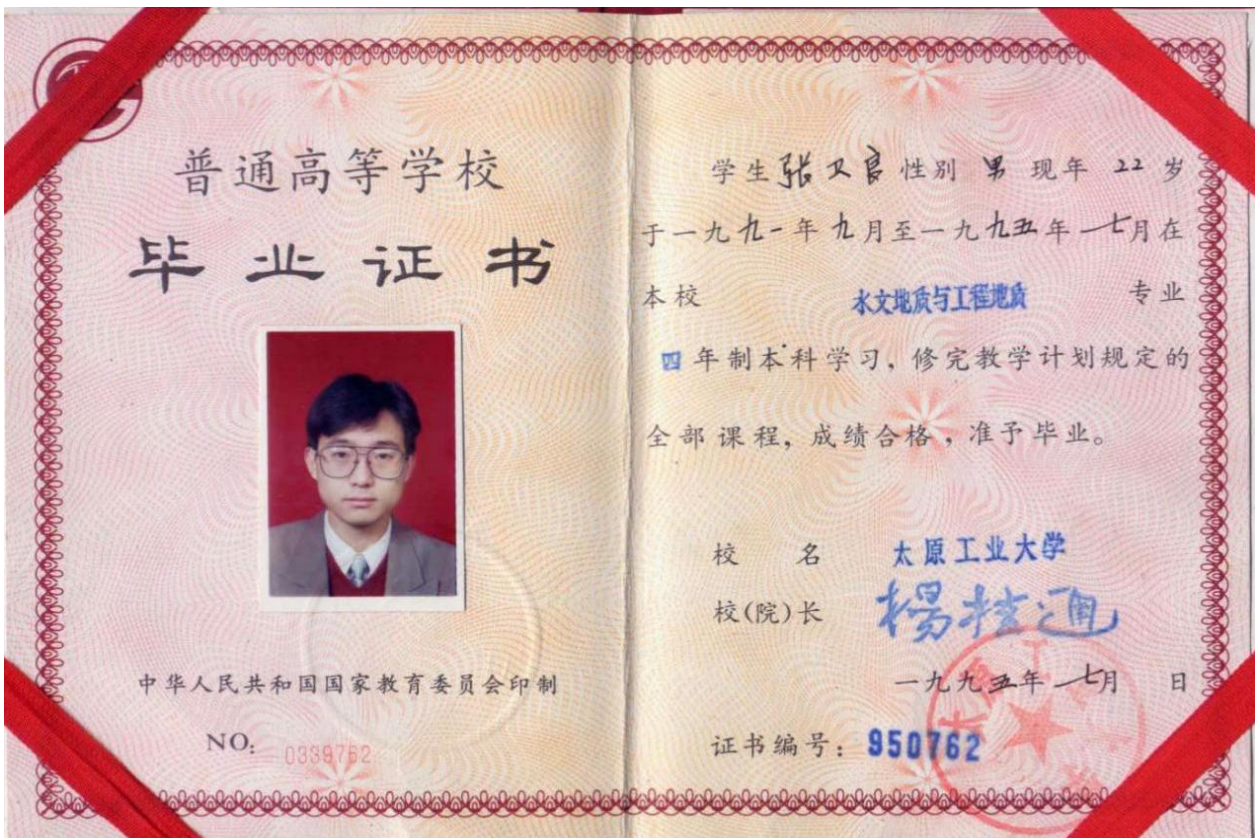 普通高等学校
毕业证书
中华人民共和国国家教育委员会印制
NO: 0339762
学生张卫官性别 男 现年 22 岁
于一九九一年九月至一九九五年七月在
本校 水文地质与工程地质 专业
四年制本科学习，修完教学计划规定的
全部课程，成绩合格，准予毕业。
校 名 太原工业大学
校(院)长 杨桂通
一九九五年七月 日
证书编号：950762